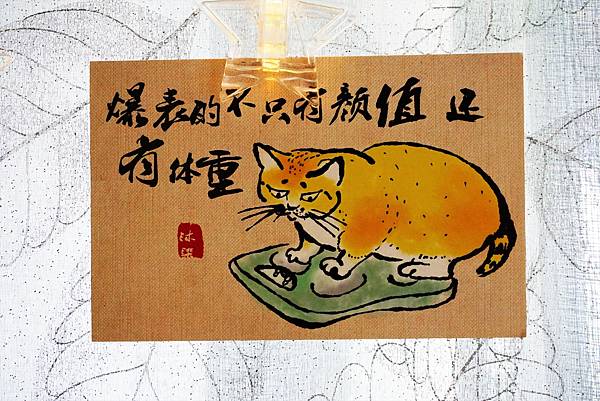 爆表的不只有颜值 还
有体重
沐槊